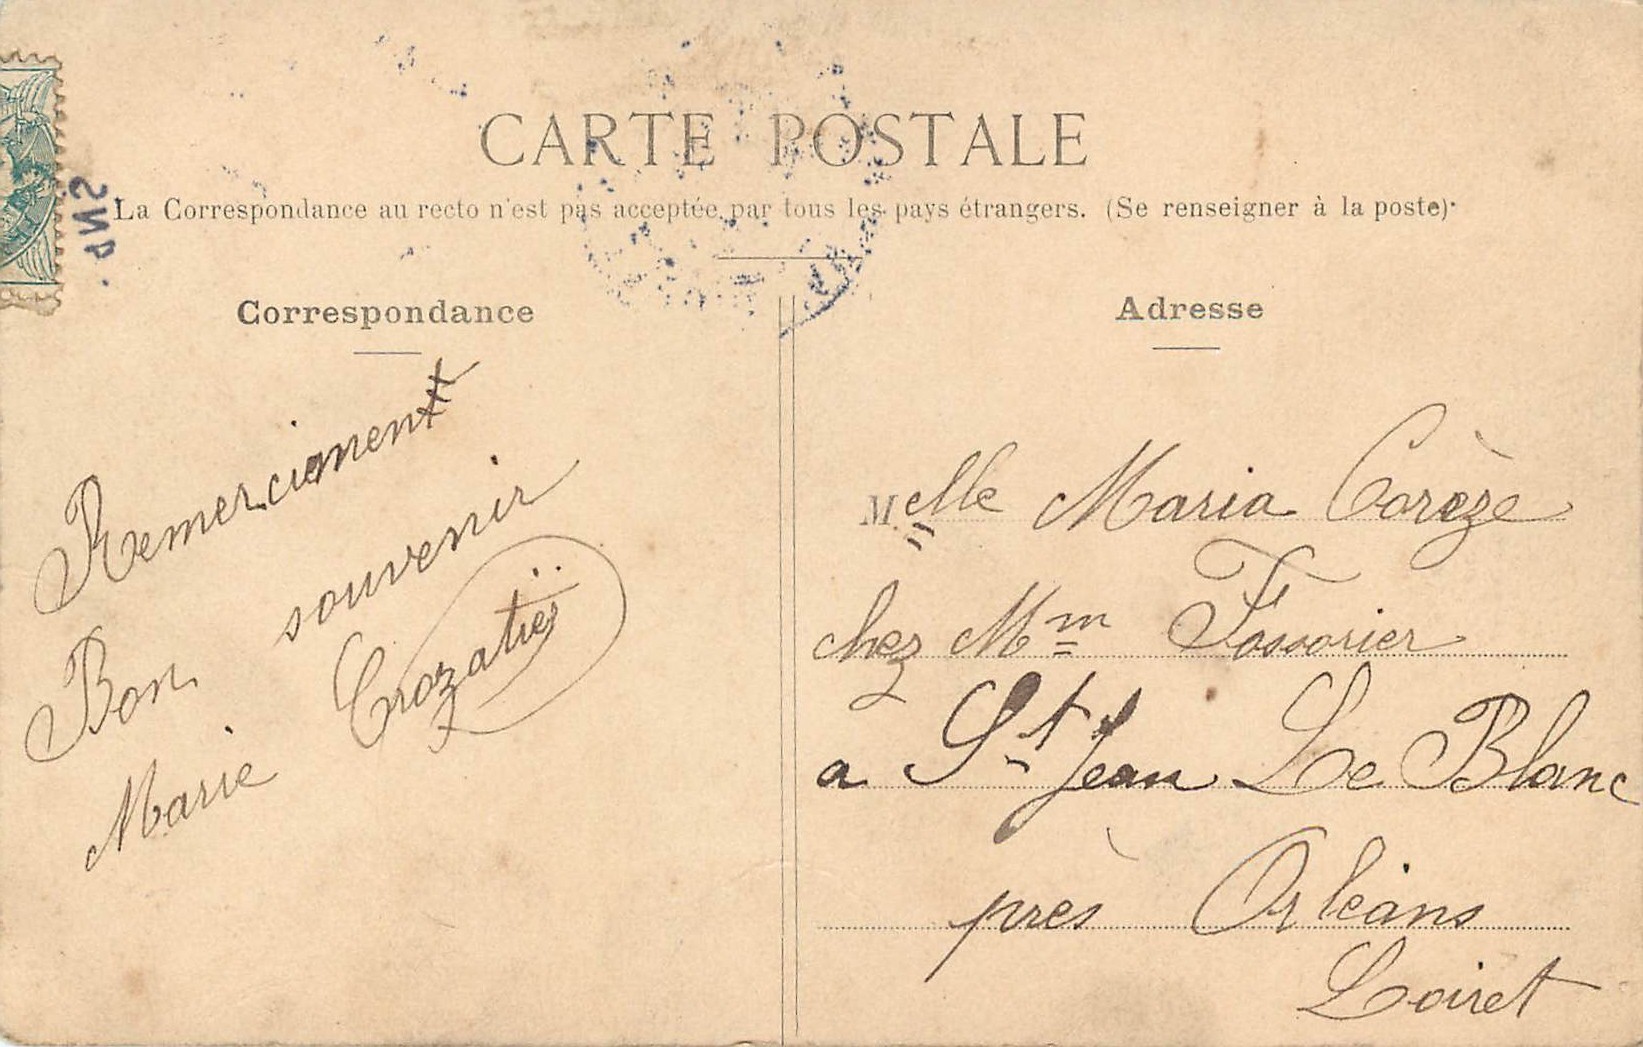 CARTE POSTALE
La Correspondance au recto n'est pas acceptée par tous les pays étrangers. (Se renseigner à la poste).
Correspondance
Remerciement
Bon souvenir
Marie Crozatier
Adresse
Melle Maria Corèze
chez Mm Fossorier
a St Jean Le Blanc
près Orléans
Loiret